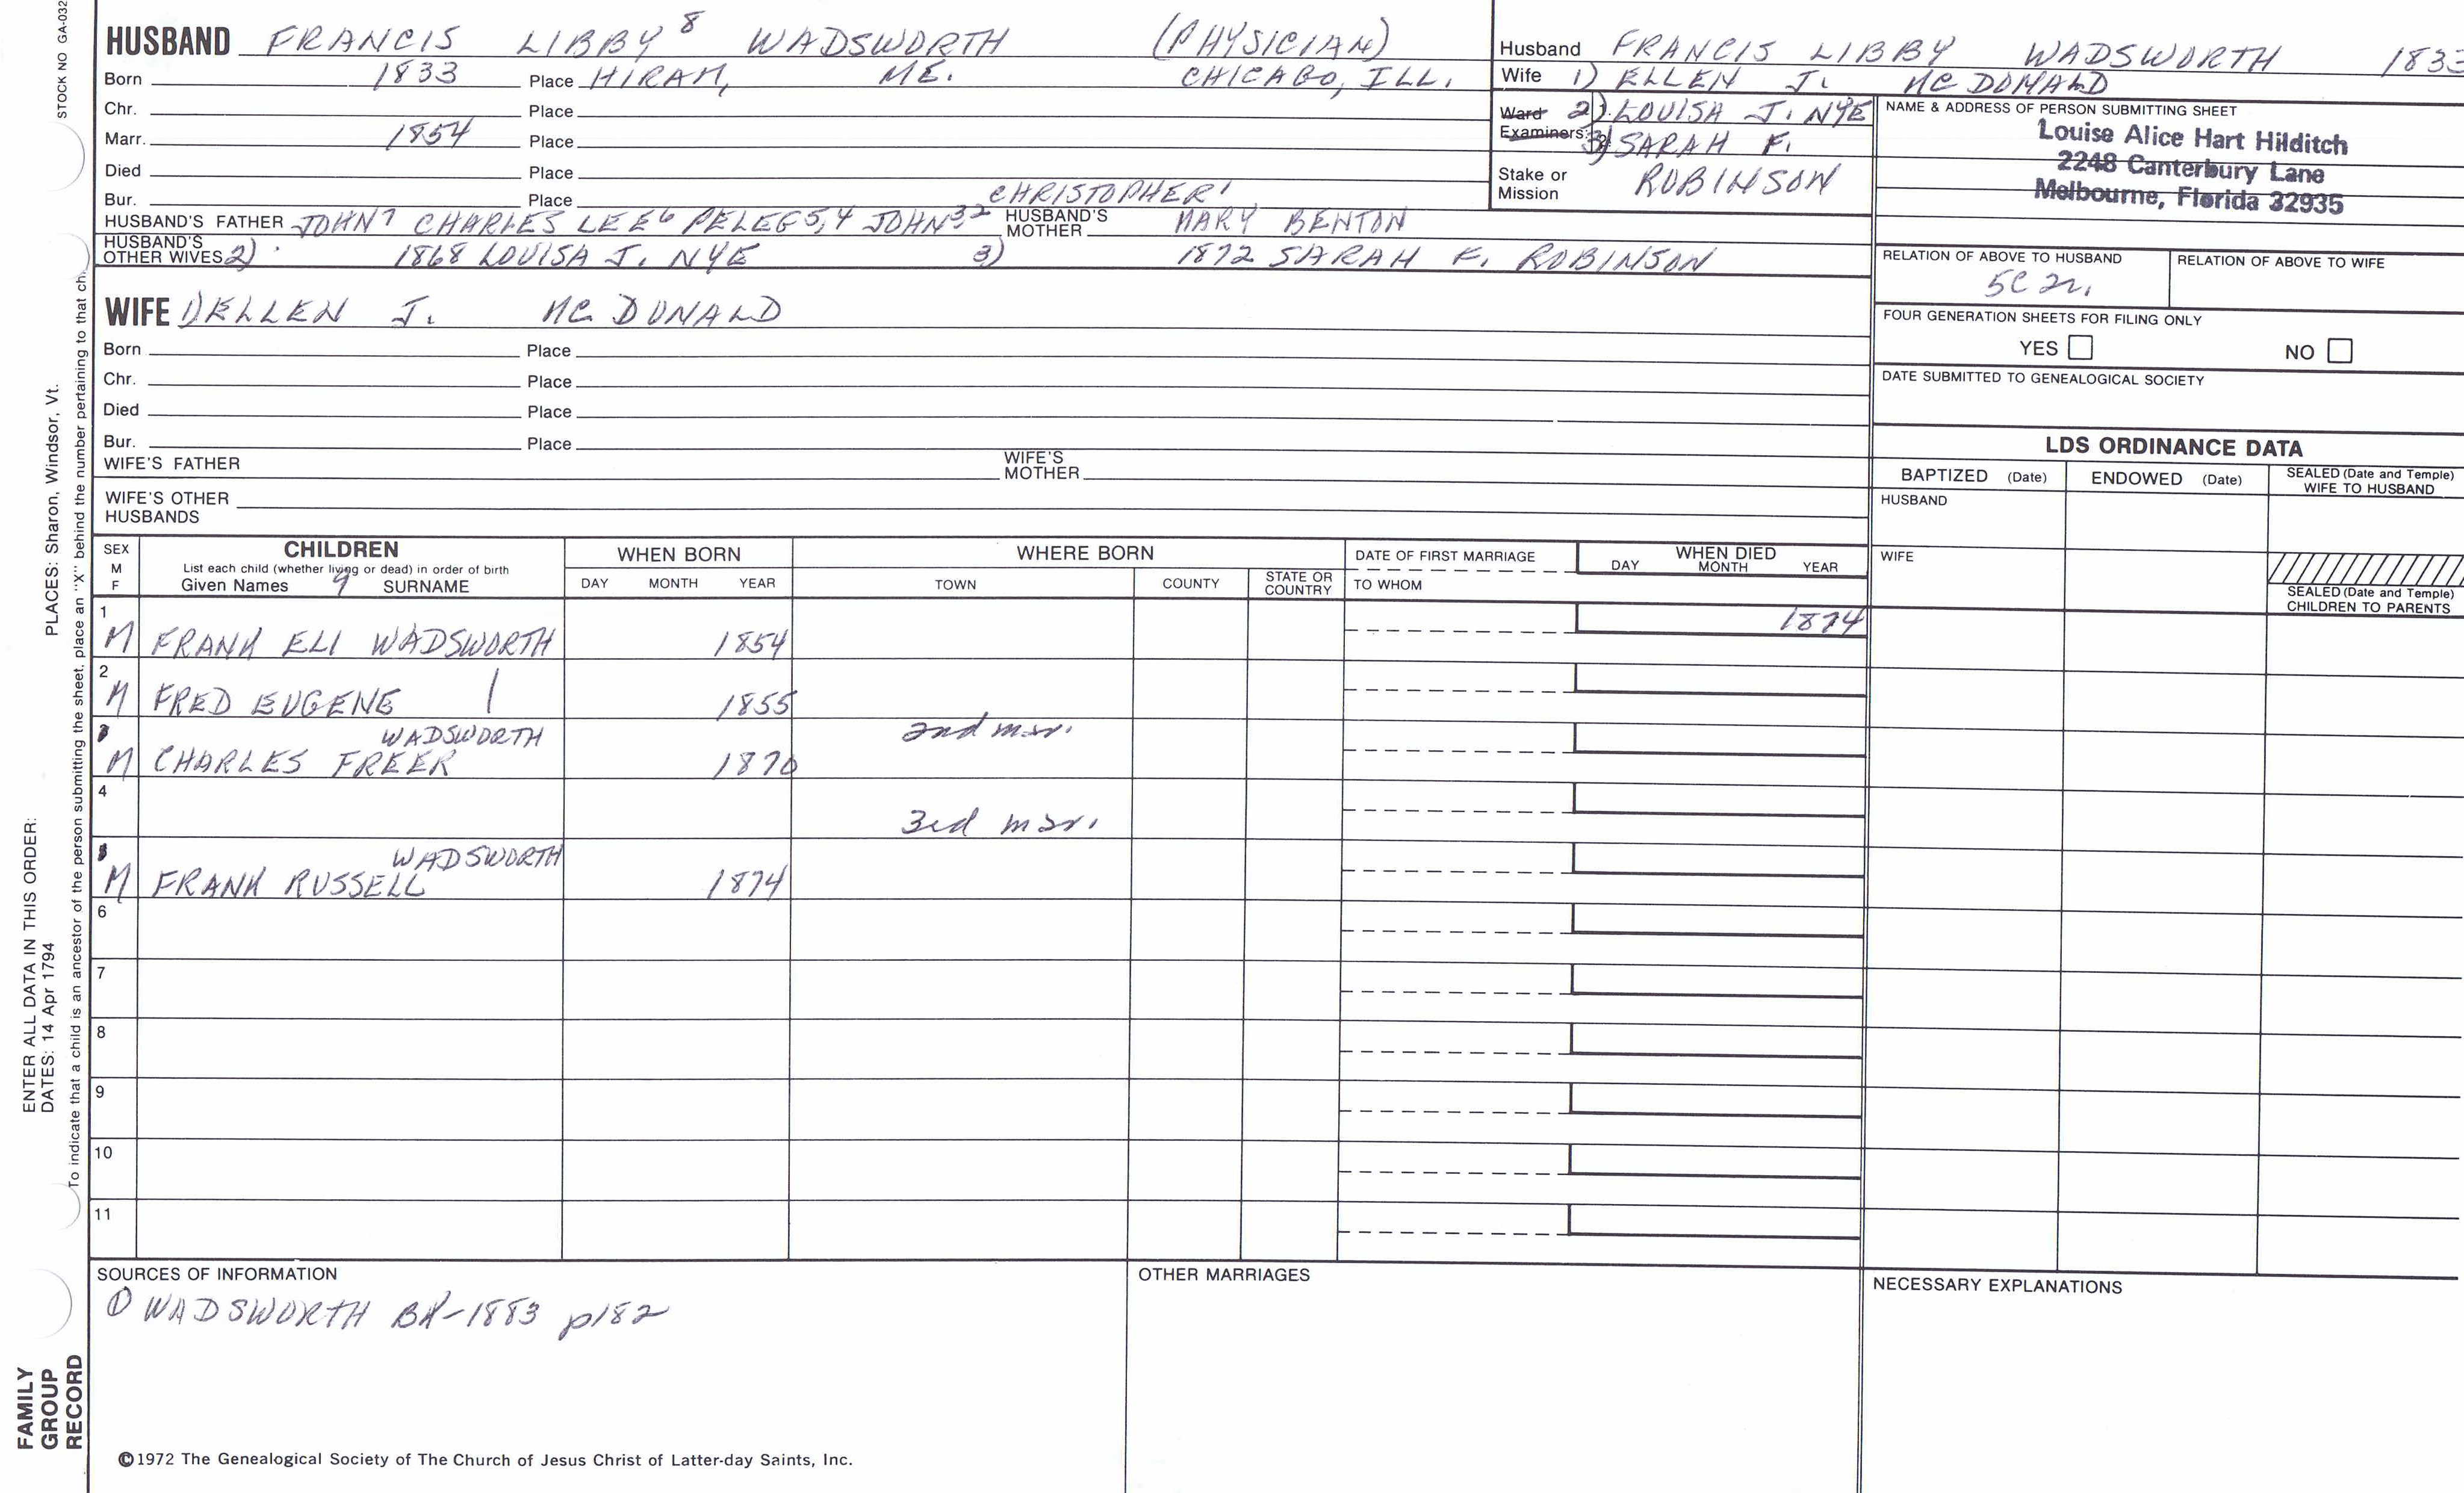 STOCK NO GA-032
HUSBAND FRANCIS LIBBY 8 WADSWORTH (PHYSICIAN)
Born 1833 Place HIRAM, ME. CHICAGO, ILL.
Chr. Place
Marr. 1854 Place
Died Place
Bur. Place
CHRISTOPHER 1
HUSBAND'S FATHER JOHN 7 CHARLES LEE 6 PELEG 5,4 JOHN 32 HUSBAND'S MOTHER MARY BENTON
HUSBAND'S OTHER WIVES 2) 1868 LOUISA J. NYE 3) 1872 SARAH F. ROBINSON
Husband FRANCIS LIBBY WADSWORTH 1833
Wife 1) ELLEN J. MC DONALD
Ward 2) LOUISA J. NYE
Examiners: 3) SARAH F.
Stake or Mission ROBINSON
NAME & ADDRESS OF PERSON SUBMITTING SHEET
Louise Alice Hart Hilditch
2248 Canterbury Lane
Melbourne, Florida 32935
RELATION OF ABOVE TO HUSBAND RELATION OF ABOVE TO WIFE
5C 2r.
FOUR GENERATION SHEETS FOR FILING ONLY
YES NO
DATE SUBMITTED TO GENEALOGICAL SOCIETY
WIFE 1) ELLEN J. MC DONALD
Born Place
Chr. Place
Died Place
Bur. Place
WIFE'S FATHER WIFE'S MOTHER
WIFE'S OTHER HUSBANDS
LDS ORDINANCE DATA
BAPTIZED (Date) ENDOWED (Date) SEALED (Date and Temple) WIFE TO HUSBAND
HUSBAND
WIFE
SEALED (Date and Temple) CHILDREN TO PARENTS
SEX M F
CHILDREN
List each child (whether living or dead) in order of birth
Given Names 9 SURNAME
WHEN BORN
DAY MONTH YEAR
WHERE BORN
TOWN COUNTY STATE OR COUNTRY
DATE OF FIRST MARRIAGE
TO WHOM
WHEN DIED
DAY MONTH YEAR
1 M FRANK ELI WADSWORTH 1854 1874
2 M FRED EUGENE 1855
3 M CHARLES FREER WADSWORTH 1870 2nd mar.
4 3rd mar.
5 M FRANK RUSSELL WADSWORTH 1874
6
7
8
9
10
11
SOURCES OF INFORMATION
① WADSWORTH BK-1883 p182
OTHER MARRIAGES
NECESSARY EXPLANATIONS
©1972 The Genealogical Society of The Church of Jesus Christ of Latter-day Saints, Inc.
FAMILY GROUP RECORD
ENTER ALL DATA IN THIS ORDER:
DATES: 14 Apr 1794
PLACES: Sharon, Windsor, Vt.
To indicate that a child is an ancestor of the person submitting the sheet, place an "X" behind the number pertaining to that ch